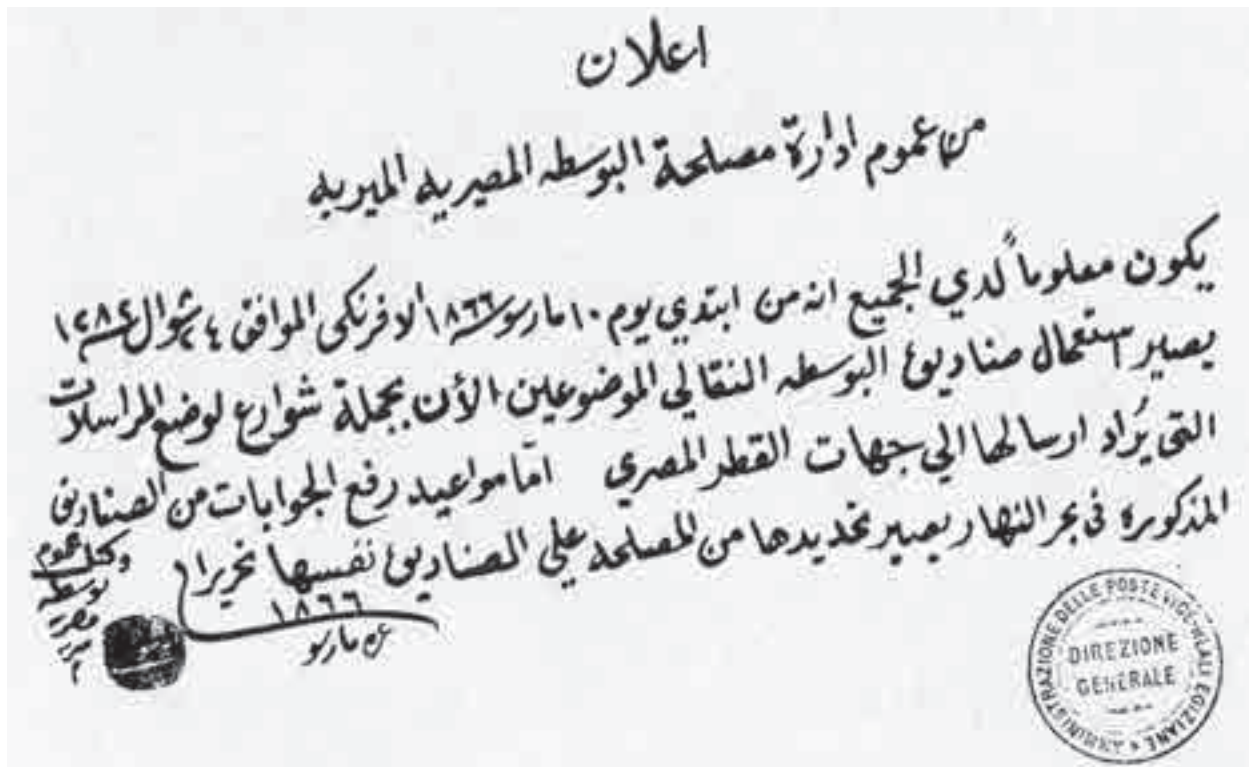 اعلان
من عموم ادارة مصلحة البوسطه المصريه الميريه
يكون معلوماً لدي الجميع انه من ابتدي يوم ١٠ مارس سنة ١٨٦٦ الافرنكى الموافق شوال ١٢٨٢
يصير استعمال صناديق البوسطه النقالي الموضوعين الأن بجملة شوارع لوضع المراسلات
التى يُراد ارسالها الي جهات القطر المصري امّا مواعيد رفع الجوابات من الصناديق
المذكوره فى بحر النهار يصير تحديدها من المصلحه علي الصناديق نفسها تحريرا
١٨٦٦
مارس
وكيل عموم
بوسطه
مصر
AMMINISTRAZIONE DELLE POSTE VICE-REALI EGIZIANE
DIREZIONE
GENERALE